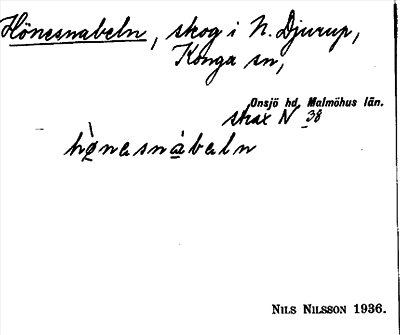 Hönesnabeln, skog i N. Djurup,
Konga sn,
Onsjö hd, Malmöhus län.
strax N 38
hö̀nasnábaln
NILS NILSSON 1936.